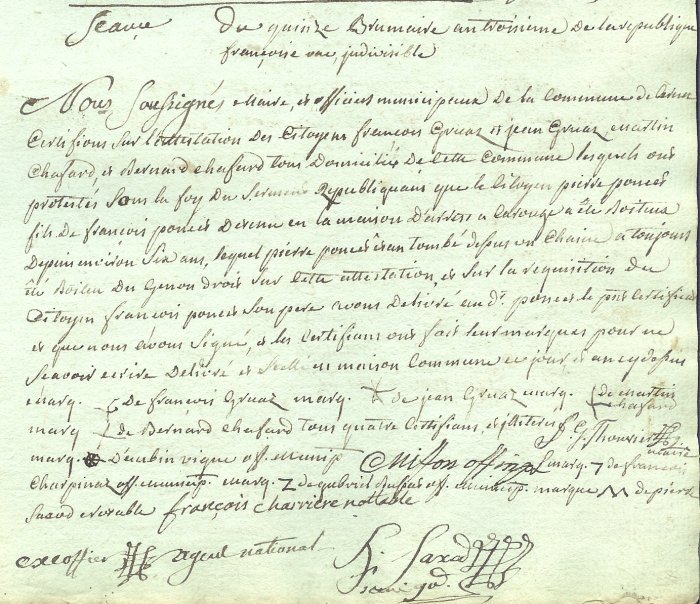 Seance Du quinze Brumaire an troisieme De la republique
françoise une, indivisible
Nous Soussignés Maire, et officiers municipeaux De la Commune de
Certifions Sur L'attestation Des Citoyens francois Gruaz et jean Gruaz, Martin
Chafard, et Bernard Chafard tous Domiciliés De Cette Commune lesquels ont
protestés Sous la foy Du Serment Republiquain que le Citoyen pierre poncet
fils De francois poncet Detenu en la maison D'arrest a Carouge a été Boiteux
Depuis environ Six ans, lequel pierre poncet etan tombé depuis un Chaine a toujours
été Boiteu Du Genou droit Sur Cette attestation, et Sur la requisition du
Citoyen francois poncet Son pere avons Delivré au dt. poncet le pnt Certificat
et que nous avons Signé, et les Certifians ont fait leur marques pour ne
Scavoir ecrire Delivré et Scellé en maison Commune ce jour et an cy dessus
Marq. De francois Gruaz marq. de jean Gruaz marq. de Martin
Chafard
marq de Bernard Chafard tous quatre Certifians, et illiterés J. G. Thouvier
Maire
marq. D'aubin vigne off. Municip offinp marq de francois
Charpinaz off. municip. marq. de gabriel off. Municip. marque de pierre
notable françois Charriere notable
excoffier agent national
F. Saxod